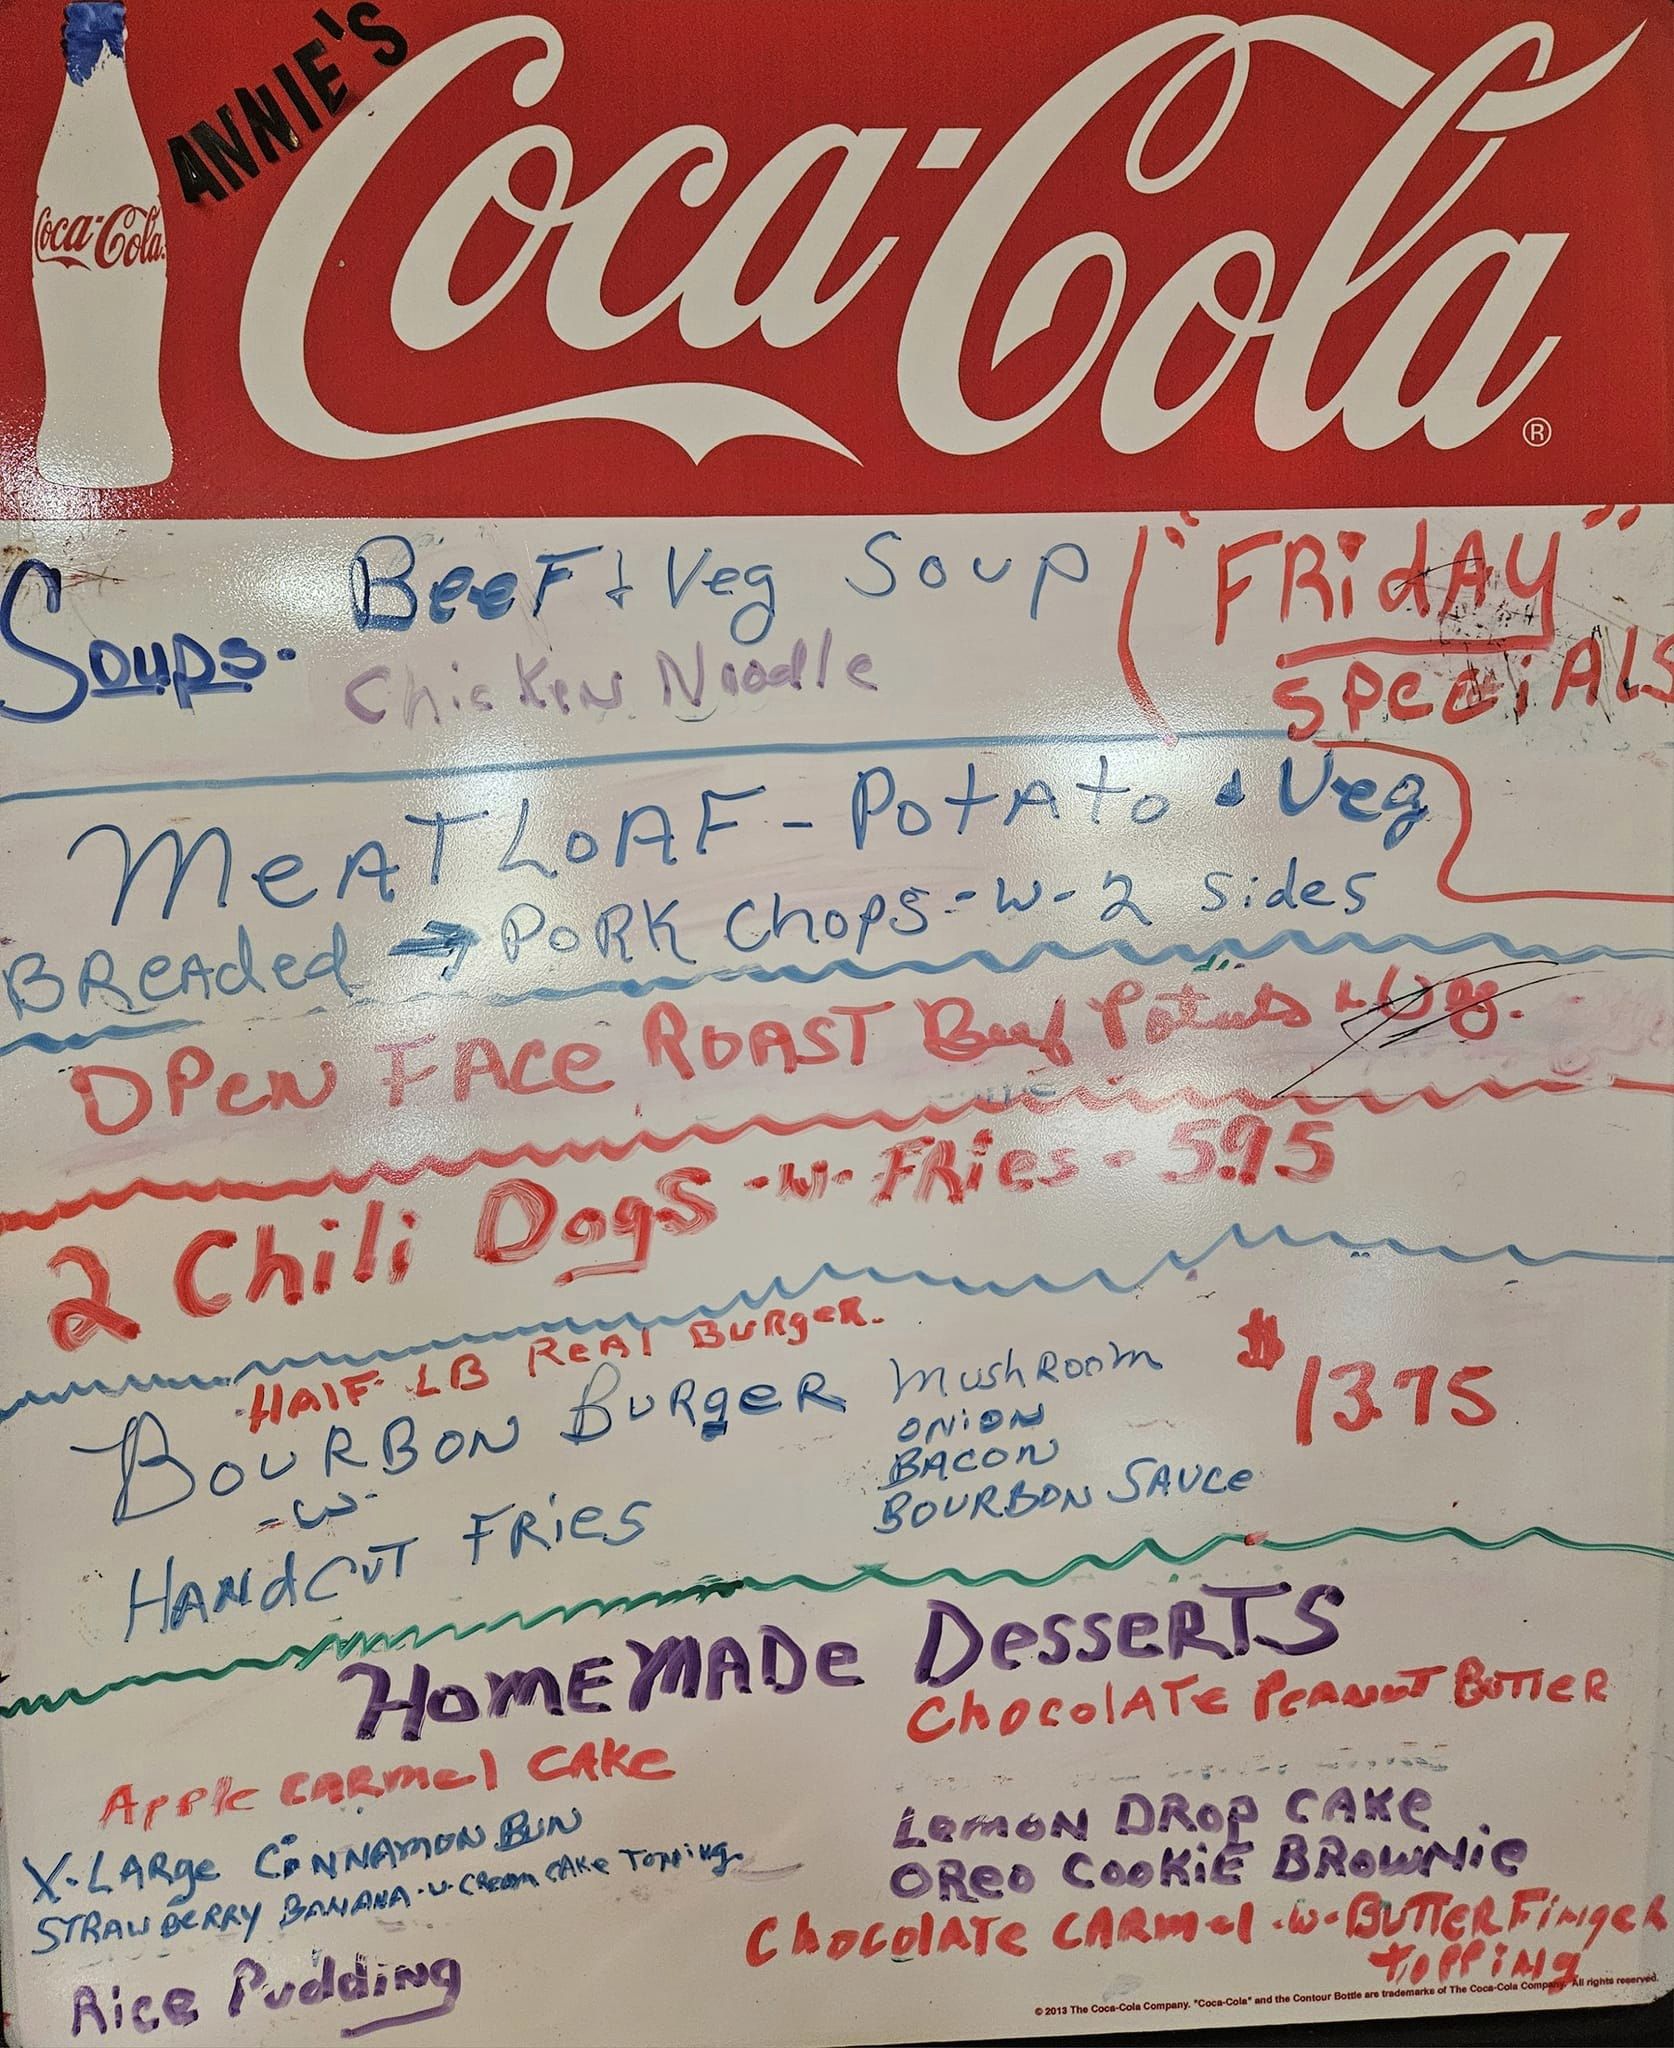 ANNIE'S
Coca-Cola
Coca-Cola®
Soups. BeeF & Veg Soup
Chicken Noodle
"FRidAY"
SPeciALS
MeAT LOAF - PotAto & Veg
BReAded → PORK Chops - w - 2 Sides
OPeN FACe ROAST Beef Potato & Veg.
2 Chili DogS - w - FRies - 5.95
HALF LB ReAl BURgeR.
BOURBON BURgeR
- w -
HANdCUT FRies
MushRoom
ONiON
BACON
BOURBON SAUCe
$13.75
HOMEMADe DesseRTS
Apple CARmel CAKe
X-LARge CiNNAMON BUN
STRAWBERRY BANANA - w - CReam CAKe Topping
Rice Pudding
ChocolATe PeANuT BUTTeR
LemoN DRop CAKe
OReo COOKiE BROWNie
ChocolATe CARmel - w - BUTTeR FiNgeR
topping
© 2013 The Coca-Cola Company. "Coca-Cola" and the Contour Bottle are trademarks of The Coca-Cola Company. All rights reserved.